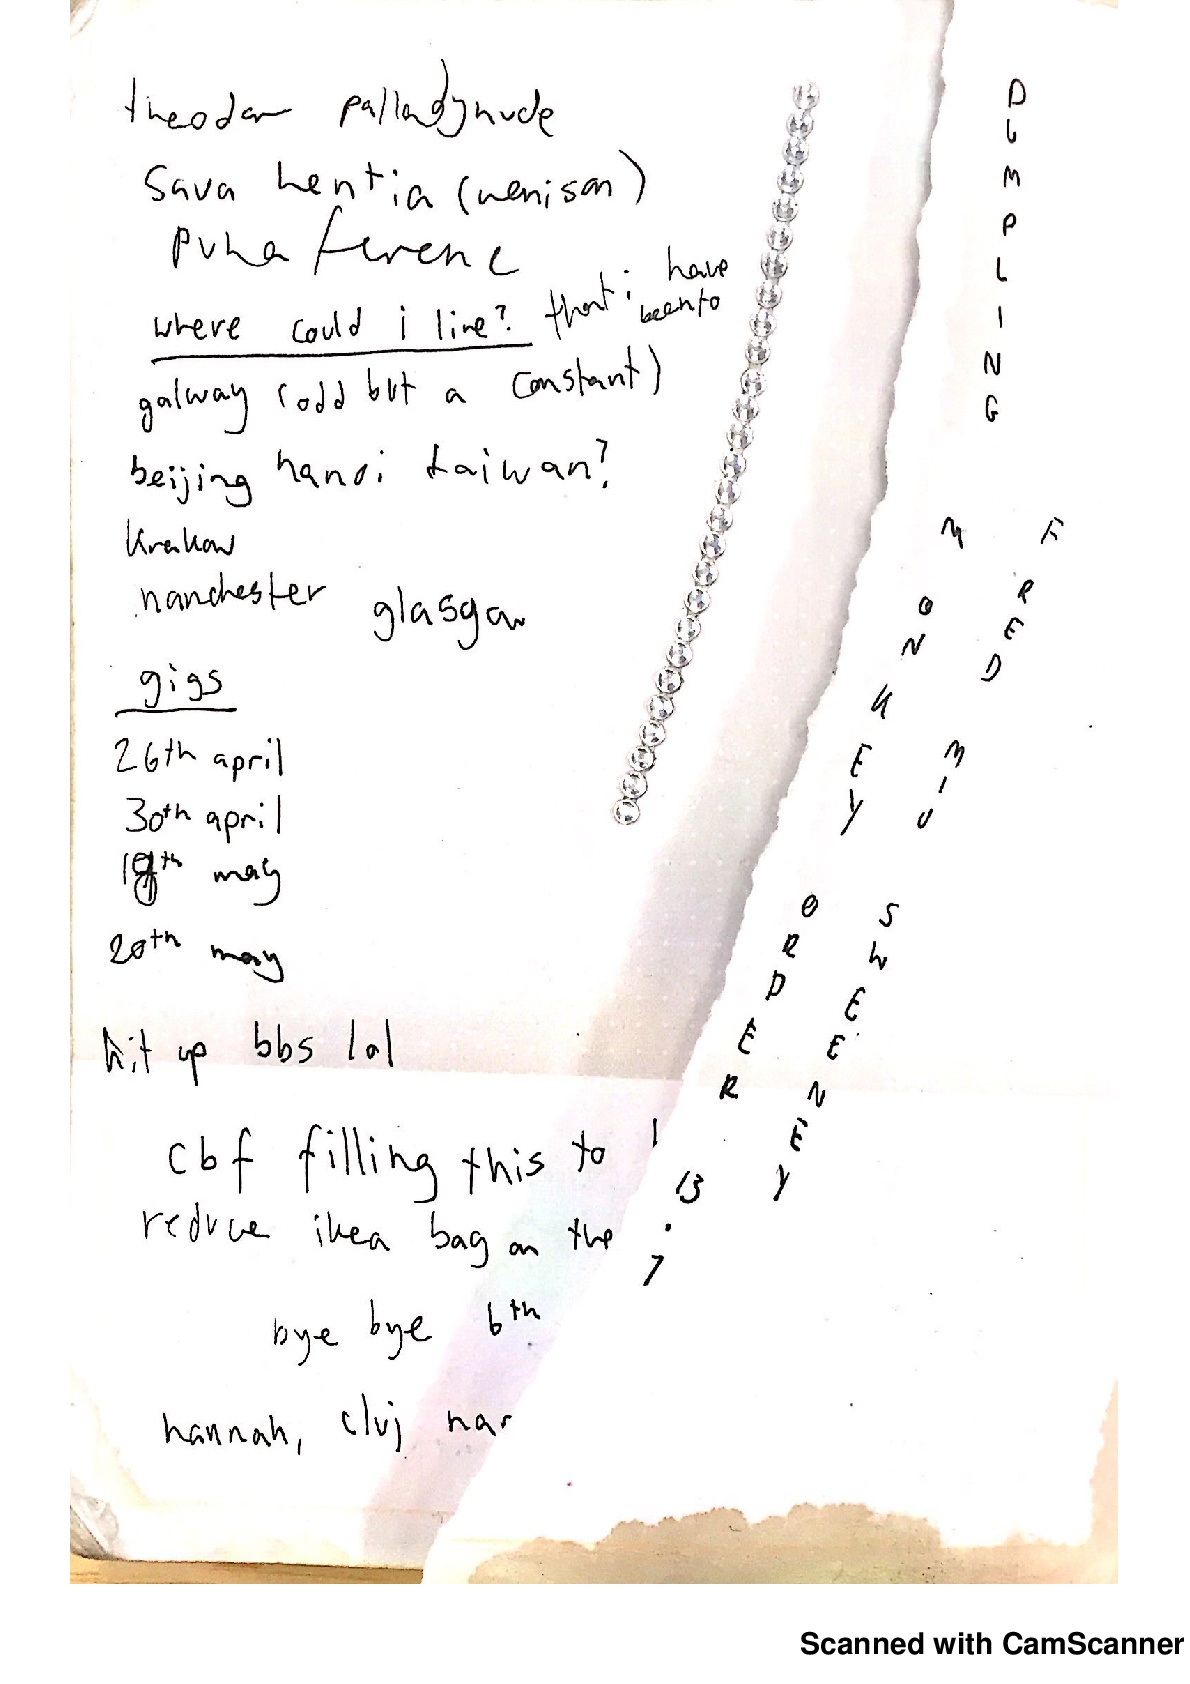 theodor pallady nude
Sava hentia (venison)
puha ferenc
where could i live? that i have been to
galway (odd but a constant)
beijing hanoi taiwan?
Krakow
manchester glasgow
gigs
26th april
30th april
18th may
20th may
hit up bbs lol
cbf filling this to
reduce ikea bag on the
bye bye 6th
hannah, cluj nar
DUMPLING
MONKEY
ORDER
1
13.7
FRED
MIU
SWEENEY
Scanned with CamScanner